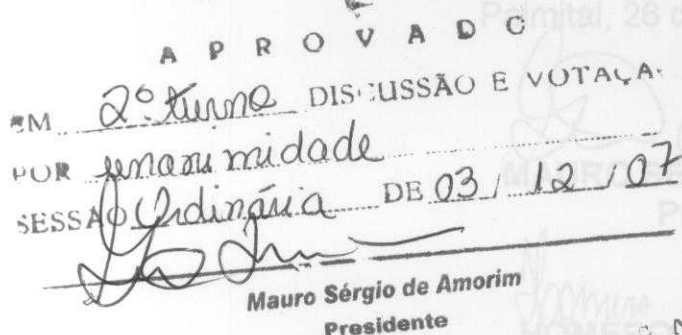 Palmital, 26 d
APROVADO
EM 2º turno DISCUSSÃO E VOTAÇA
POR unanimidade
SESSÃO Ordinária DE 03 / 12 / 07
Mauro Sérgio de Amorim
Presidente